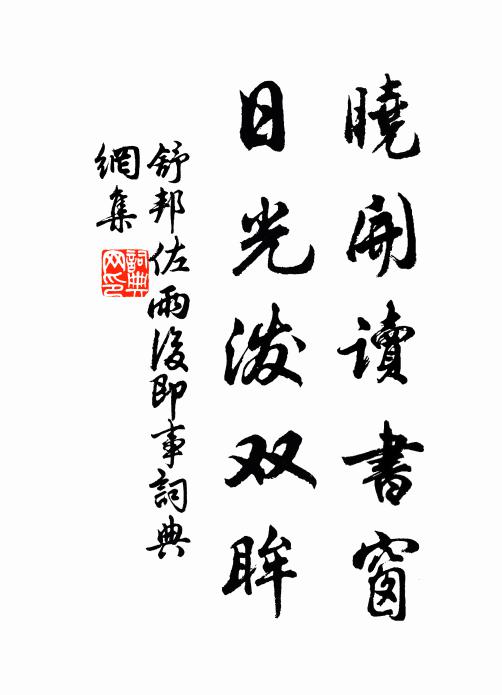 曉開讀書窗
日光潑双眸
舒邦佐雨後即事詞典
網集
詞典网印